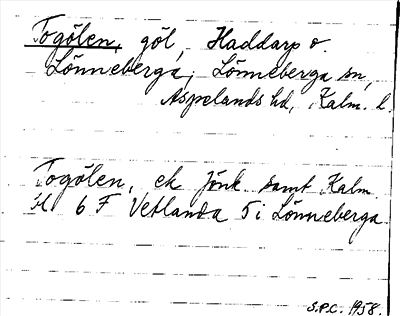 Togölen, göl, Haddarp o.
Lönneberga, Lönneberga sn,
Aspelands hd, Kalm. l.
Togölen, ek Jönk. samt Kalm.
bl 6 F Vetlanda 5 i Lönneberga
S.P.C. 1958.